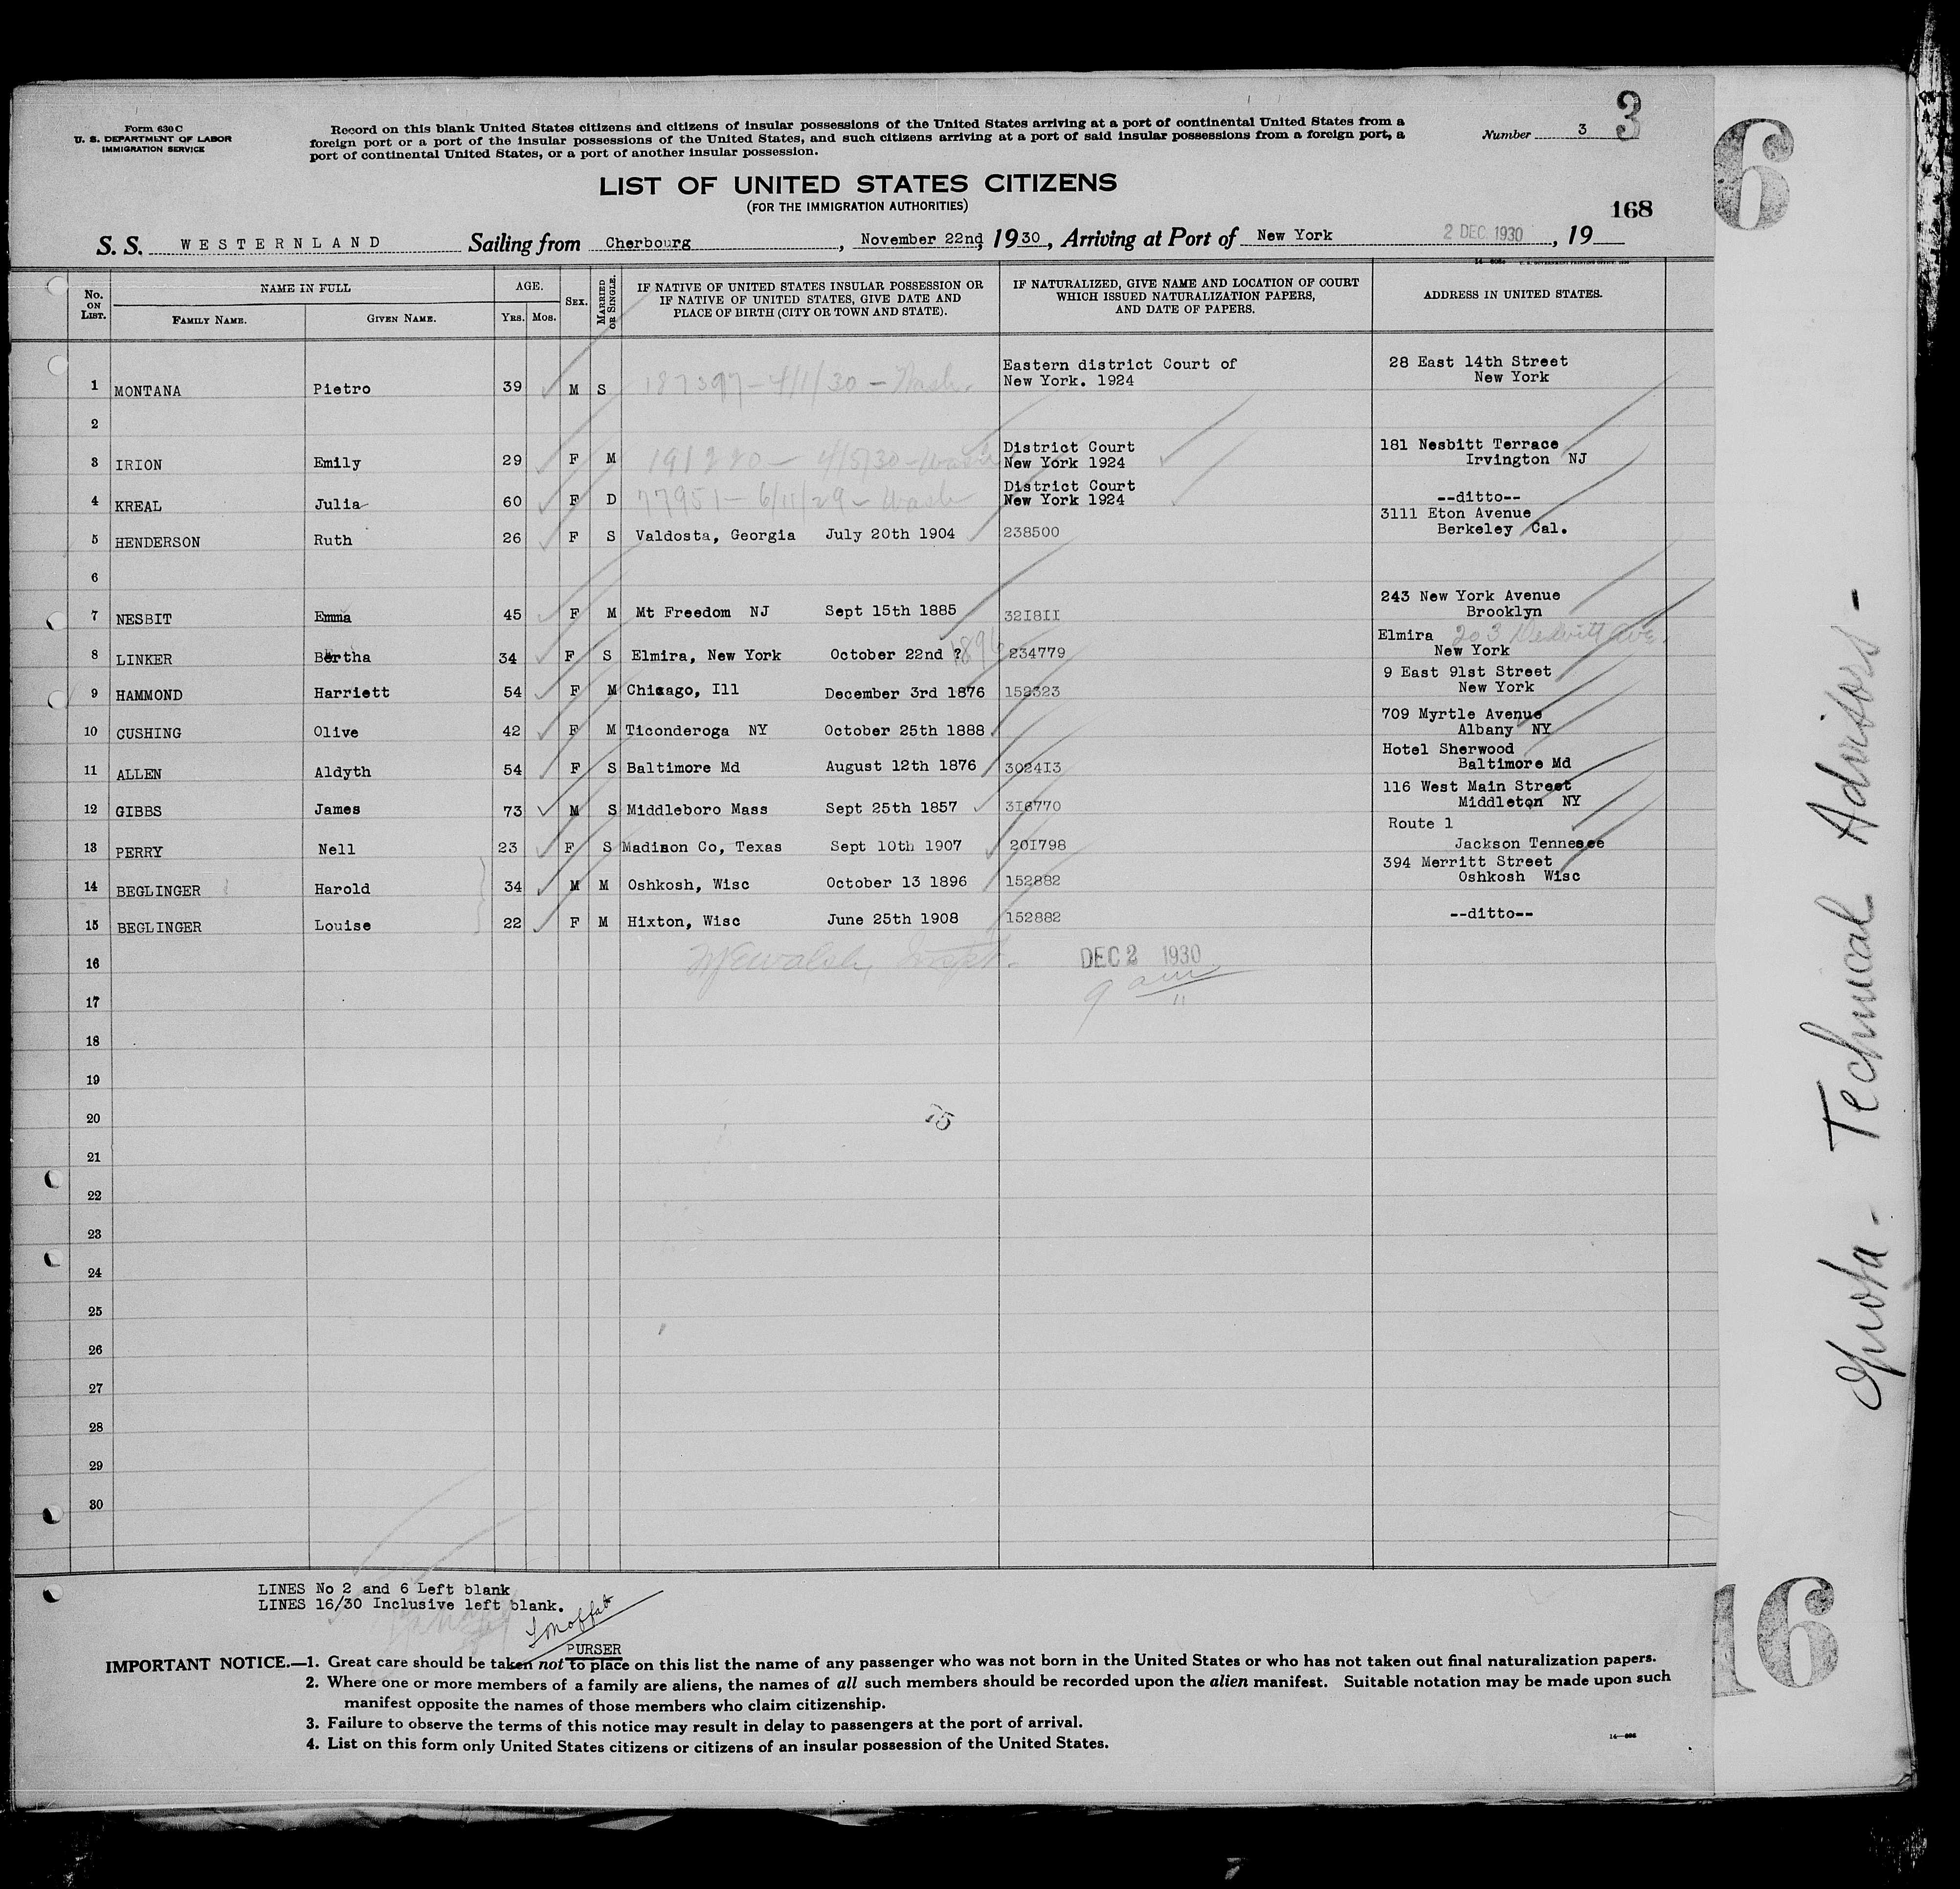 Form 630 C
U. S. DEPARTMENT OF LABOR
IMMIGRATION SERVICE
Record on this blank United States citizens and citizens of insular possessions of the United States arriving at a port of continental United States from a
foreign port or a port of the insular possessions of the United States, and such citizens arriving at a port of said insular possessions from a foreign port, a
port of continental United States, or a port of another insular possession.
Number 3 3
6
LIST OF UNITED STATES CITIZENS
(FOR THE IMMIGRATION AUTHORITIES)
168
S. S. WESTERNLAND Sailing from Cherbourg, November 22nd, 1930, Arriving at Port of New York 2 DEC. 1930, 19
No. ON LIST. NAME IN FULL FAMILY NAME. GIVEN NAME. AGE. YRS. MOS. SEX. MARRIED OR SINGLE. IF NATIVE OF UNITED STATES INSULAR POSSESSION OR IF NATIVE OF UNITED STATES, GIVE DATE AND PLACE OF BIRTH (CITY OR TOWN AND STATE). IF NATURALIZED, GIVE NAME AND LOCATION OF COURT WHICH ISSUED NATURALIZATION PAPERS, AND DATE OF PAPERS. ADDRESS IN UNITED STATES.
1 MONTANA Pietro 39 M S 187397 - 4/1/30 - Wash. Eastern district Court of New York. 1924 28 East 14th Street New York
2
3 IRION Emily 29 F M 4/15/30 - Wash District Court New York 1924 181 Nesbitt Terrace Irvington NJ
4 KREAL Julia 60 F D 77951 - 6/11/29 - Wash District Court New York 1924 --ditto--
5 HENDERSON Ruth 26 F S Valdosta, Georgia July 20th 1904 238500 3111 Eton Avenue Berkeley Cal.
6
7 NESBIT Emma 45 F M Mt Freedom NJ Sept 15th 1885 321811 243 New York Avenue Brooklyn
8 LINKER Bertha 34 F S Elmira, New York October 22nd ? 1896 234779 Elmira 203 Ave. New York
9 HAMMOND Harriett 54 F M Chicago, Ill December 3rd 1876 152323 9 East 91st Street New York
10 CUSHING Olive 42 F M Ticonderoga NY October 25th 1888 709 Myrtle Avenue Albany NY
11 ALLEN Aldyth 54 F S Baltimore Md August 12th 1876 302413 Hotel Sherwood Baltimore Md
12 GIBBS James 73 M S Middleboro Mass Sept 25th 1857 316770 116 West Main Street Middleton NY
13 PERRY Nell 23 F S Madison Co, Texas Sept 10th 1907 201798 Route 1 Jackson Tennesee
14 BEGLINGER Harold 34 M M Oshkosh, Wisc October 13 1896 152882 394 Merritt Street Oshkosh Wisc
15 BEGLINGER Louise 22 F M Hixton, Wisc June 25th 1908 152882 --ditto--
16 DEC 2 1930
17 9 am
18
19
20
21
22
23
24
25
26
27
28
29
30
LINES No 2 and 6 Left blank
LINES 16/30 Inclusive left blank.
PURSER
IMPORTANT NOTICE.—1. Great care should be taken not to place on this list the name of any passenger who was not born in the United States or who has not taken out final naturalization papers.
2. Where one or more members of a family are aliens, the names of all such members should be recorded upon the alien manifest. Suitable notation may be made upon such
manifest opposite the names of those members who claim citizenship.
3. Failure to observe the terms of this notice may result in delay to passengers at the port of arrival.
4. List on this form only United States citizens or citizens of an insular possession of the United States.
Technical Advisors -
16